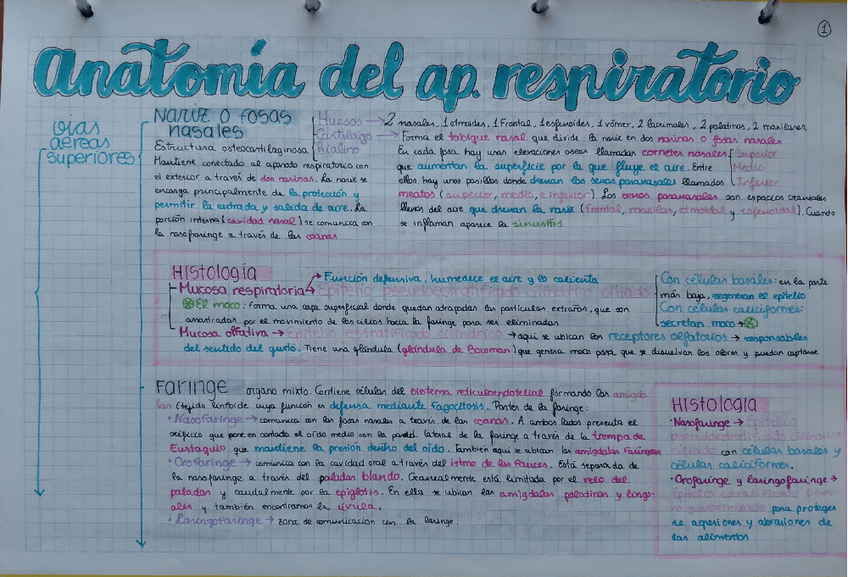 1
Anatomía del ap. respiratorio
vías aéreas superiores
Nariz o fosas nasales
Estructura osteocartilaginosa
Mantiene conectado al aparato respiratorio con
el exterior a través de dos narinas. La nariz se
encarga principalmente de la protección y
permitir la entrada y salida de aire. La
porción interna (cavidad nasal) se comunica con
la nasofaringe a través de las coanas
Huesos → 2 nasales, 1 etmoides, 1 frontal, 1 esfenoides, 1 vómer, 2 lacrimales, 2 palatinos, 2 maxilares
Cartílago hialino → Forma el tabique nasal que divide la nariz en dos narinas o fosas nasales
En cada fosa hay unas elevaciones óseas llamadas cornetes nasales
Superior
Medio
Inferior
que aumentan la superficie por la que fluye el aire. Entre
ellos hay unos pasillos donde drenan los senos paranasales llamados
meatos (superior, medio, e inferior). Los senos paranasales son espacios craneales
llenos del aire que drenan la nariz (frontal, maxilar, etmoidal y esfenoidal). Cuando
se inflaman aparece la sinusitis
Histología
Mucosa respiratoria → Función defensiva, humedece el aire y lo calienta
Epitelio pseudoestratificado cilíndrico ciliado
Con células basales: en la parte
más baja, regeneran el epitelio
Con células caliciformes:
secretan moco →
El moco: forma una capa superficial donde quedan atrapadas las partículas extrañas, que son
arrastradas por el movimiento de los cilios hacia la faringe para ser eliminadas
Mucosa olfativa → Epitelio pseudoestratificado cilíndrico → aquí se ubican los receptores olfatorios → responsables
del sentido del gusto. Tiene una glándula (glándula de Bowman) que genera moco para que se disuelvan los olores y puedan captarse
Faringe órgano mixto. Contiene células del sistema reticuloendotelial formando las amígda
las (tejido linfoide cuya función es defensa mediante fagocitosis. Partes de la faringe:
· Nasofaringe → comunica con las fosas nasales a través de las coanas. A ambos lados presenta el
orificio que pone en contacto el oído medio con la pared lateral de la faringe a través de la trompa de
Eustaquio que mantiene la presión dentro del oído. También aquí se ubican las amígdalas faríngeas
· Orofaringe → comunica con la cavidad oral a través del istmo de las fauces. Está separada de
la nasofaringe a través del paladar blando. Cranealmente está limitada por el velo del
paladar y caudalmente por la epiglotis. En ella se ubican las amígdalas palatinas y lingu-
ales y también encontramos la úvula.
· Laringofaringe → zona de comunicación con la laringe.
Histología
· Nasofaringe → Epitelio
pseudoestratificado cilíndrico
ciliado con células basales y
células caliciformes.
· Orofaringe y laringofaringe →
Epitelio estratificado plano
no queratinizado para proteger
de agresiones y abrasiones de
los alimentos